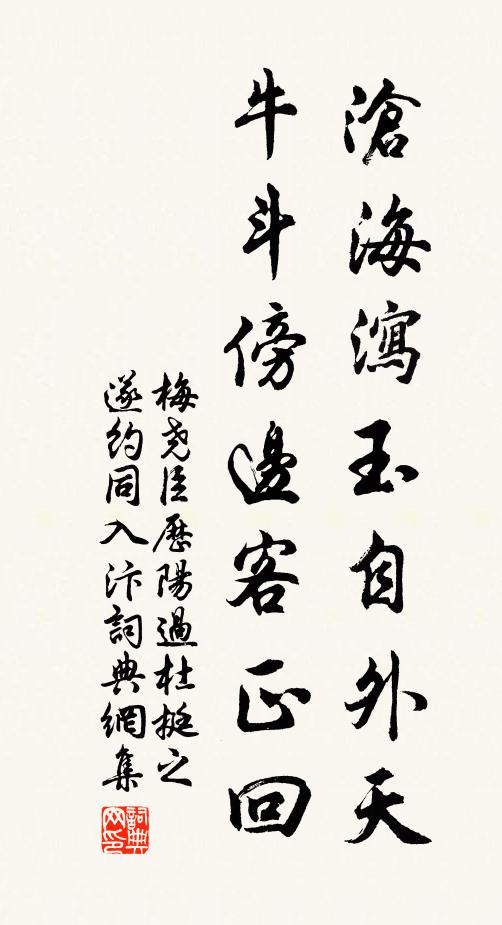 滄海瀉玉自外天
牛斗傍邊客正回
梅堯臣歷陽過杜挺之
遂約同入汴詞典網集
詞典網印